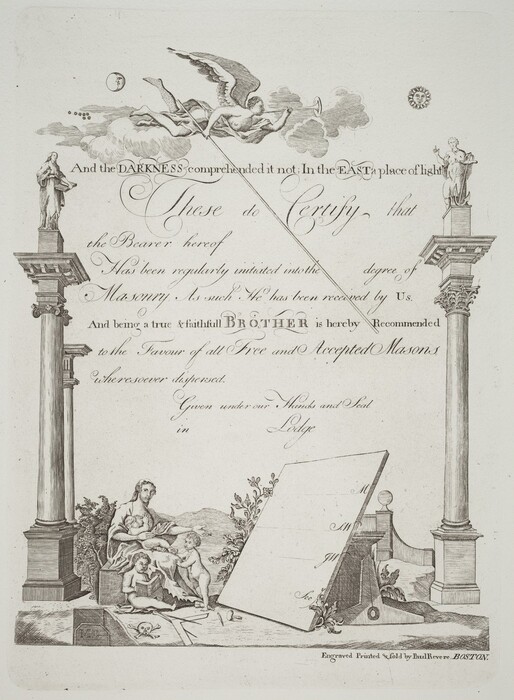 And the DARKNESS comprehended it not: In the EAST a place of light
These do Certify that
the Bearer hereof
Has been regularly initiated into the degree of
Masonry. As such He has been received by Us.
And being a true & faithfull BROTHER is hereby Recommended
to the Favour of all Free and Accepted Masons
wheresoever dispersed.
Given under our Hands and Seal
in Lodge
M
SW
JW
Sec
Engraved Printed & Sold by Paul Revere. BOSTON.